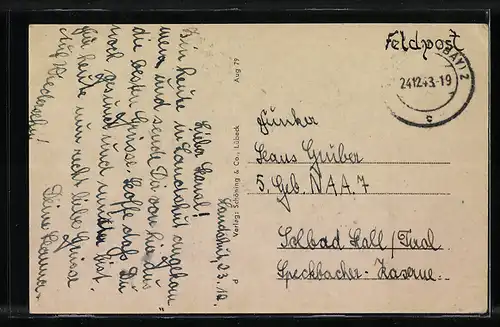 Landshut, 23.12.
Lieber Hansl!
Bin heute in Landshut angekom=
men und sende Dir von hier aus
die besten Grüsse. Hoffe daß Du
noch gesund und munter bist.
für heute nun recht liebe Grüsse
Auf Wiedersehn!
Deine
Aug 79
Verlag: Schöning & Co., Lübeck
P
Feldpost
(BAY) 2
24.12.43.-19
c
Funker
Hans Gruber
5. Geb. N.A.A. 7
Solbad Hall / Tirol
Speckbacher-Kaserne